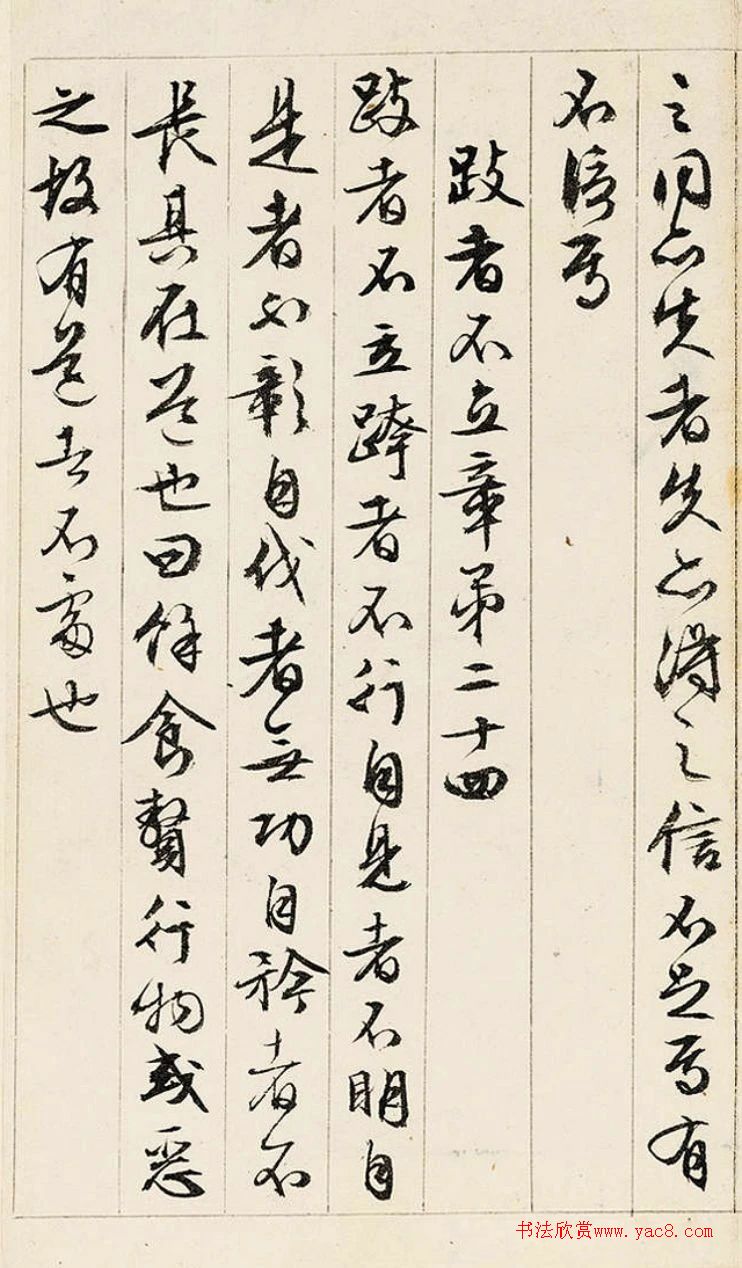 之同亦失者失亦得之信不足焉有
不信焉
跂者不立章第二十四
跂者不立跨者不行自見者不明自
是者不彰自伐者無功自矜者不
長其在道也曰餘食贅行物或惡
之故有道者不處也
书法欣赏www.yac8.com